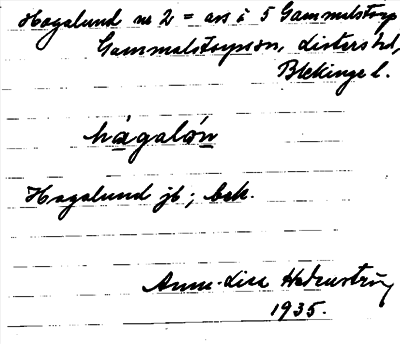 Hagalund nr 2 = avs. å 5 Gammelstorp
Gammalstorpssn, Listers hd,
Blekinge l.
hàgalón
Hagalund jb; bek.
Anna-Lisa Hedenström
1935.